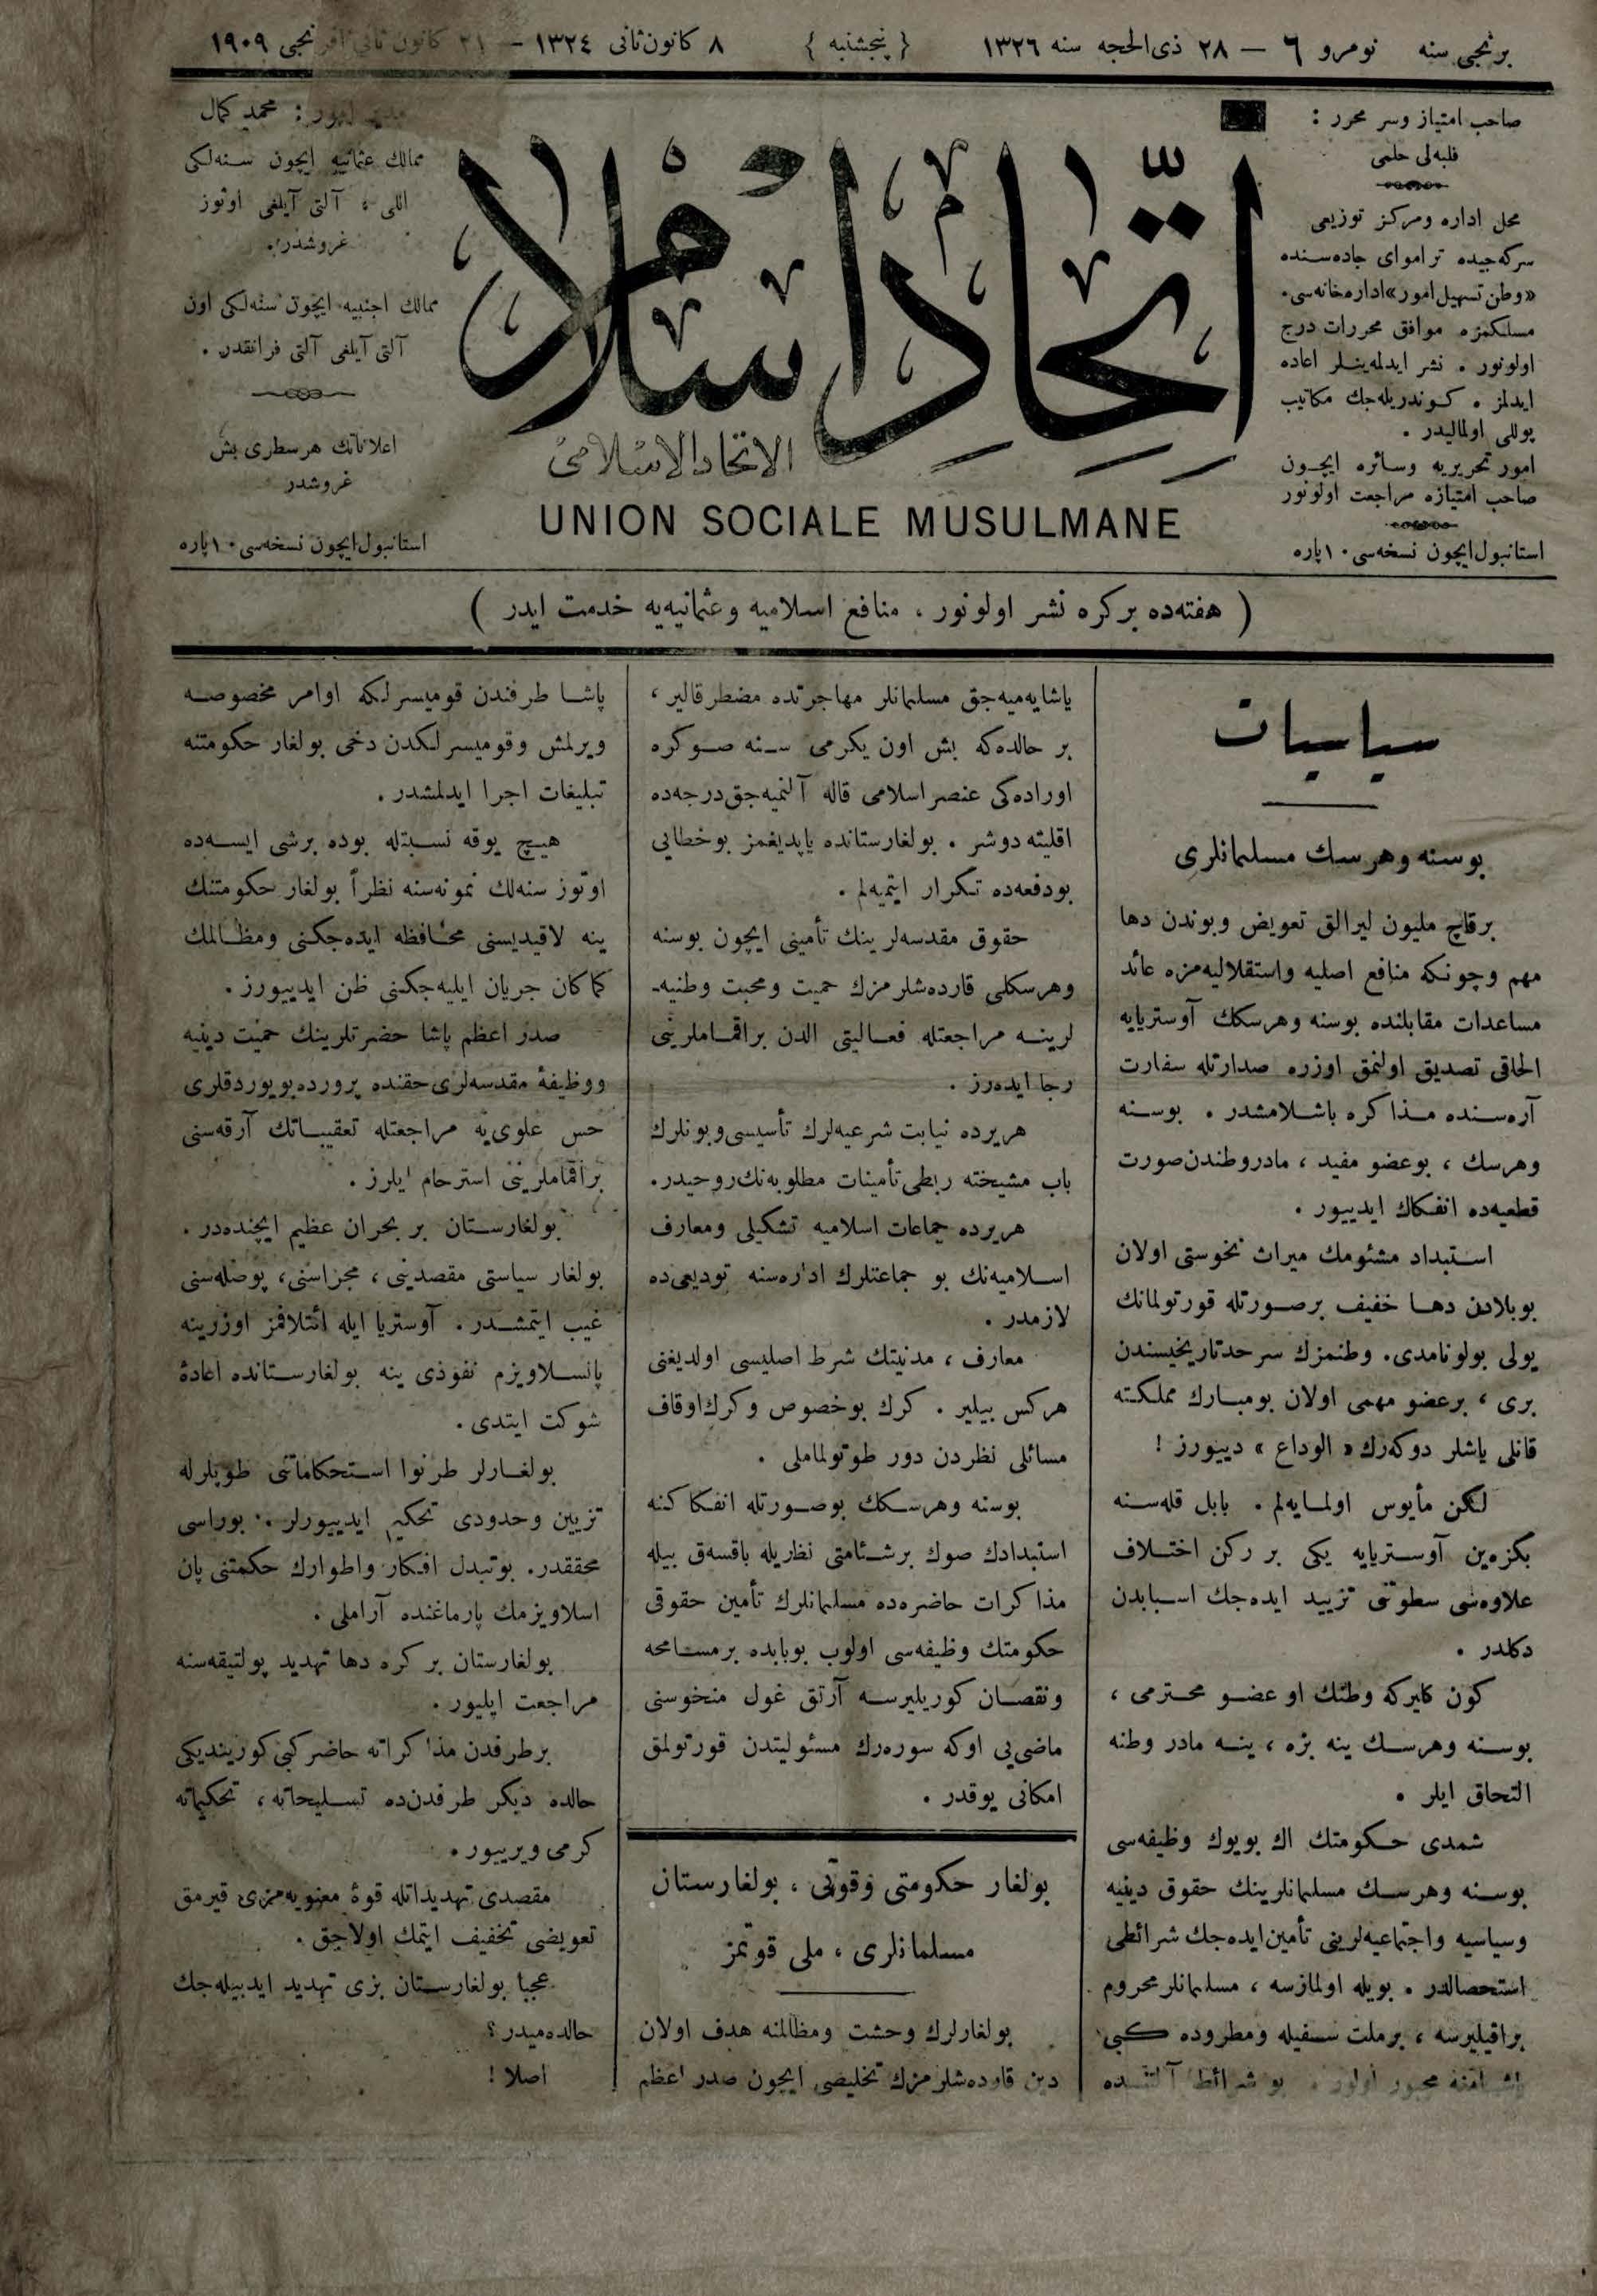 برنجی سنه نومرو ٦ — ٢٨ ذی‌الحجه سنه ١٣٢٦ { پنجشنبه } ٨ كانون‌ثانی ١٣٢٤ — ٢١ كانون ثانی افرنجی ١٩٠٩
صاحب امتیاز وسر محرر :
فلبه‌لی حلمی
محل اداره ومركز توزیعی
سركه‌جیده تراموای جاده‌سنده
«وطن تسهیل امور» اداره‌خانه‌سی.
مسلكمزه موافق محررات درج
اولونور . نشر ایدلمه‌ینلر اعاده
ایدلمز . كوندریله‌جك مكاتیب
پوللی اولمالیدر .
امور تحریریه وسائره ایچون
صاحب امتیازه مراجعت اولونور
استانبول‌ایچون نسخه‌سی ١٠پاره
اتّحاد اسلام
الاتحاد الاسلامی
UNION SOCIALE MUSULMANE
مدیر امور : محمد كمال
ممالك عثمانیه ایچون سنه‌لكی
اللی ، آلتی آیلغی اوتوز
غروشدر.
ممالك اجنبیه ایچون سنه‌لكی اون
آلتی آیلغی آلتی فرانقدر .
اعلاناتك هر سطری بش
غروشدر
استانبول‌ایچون نسخه‌سی ١٠پاره
( هفته‌ده بركره نشر اولونور ، منافع اسلامیه وعثمانیه‌یه خدمت ایدر )
سیاسیات
بوسنه وهرسك مسلمانلری
برقاچ ملیون لیرالق تعویض وبوندن دها
مهم وچونكه منافع اصلیه واستقلالیه‌مزه عائد
مساعدات مقابلنده بوسنه وهرسكك آوستریایه
الحاقی تصدیق اولنمق اوزره صدارتله سفارت
آره‌سنده مذاكره باشلامشدر . بوسنه
وهرسك ، بوعضو مفید ، مادروطندن‌صورت
قطعیه‌ده انفكاك ایدییور .
استبداد مشئومك میراث نخوستی اولان
بوبلادن دها خفیف برصورتله قورتولمانك
یولی بولونامدی. وطنمزك سرحدتاریخیسندن
بری ، برعضو مهمی اولان بومبارك مملكته
قانلی یاشلر دوكه‌رك « الوداع » دییورز !
لكن مأیوس اولمایه‌لم . بابل قله‌سنه
بكزه‌ین آوستریایه یكی بر ركن اختلاف
علاوه‌سی سطوتنی تزیید ایده‌جك اسبابدن
دكلدر .
كون كلیركه وطنك او عضو محترمی ،
بوسنه وهرسك ینه بزه ، ینه مادر وطنه
التحاق ایلر .
شمدی حكومتك اك بویوك وظیفه‌سی
بوسنه وهرسك مسلمانلرینك حقوق دینیه
وسیاسیه واجتماعیه‌لرینی تأمین‌ایده‌جك شرائطی
استحصالدر . بویله اولمازسه ، مسلمانلر محروم
براقیلیرسه ، برملت سفیله ومطروده كبی
یاشامنه مجبور اولور . بو شرائط آلتنده
یاشایه‌میه‌جق مسلمانلر مهاجرتده مضطر قالیر ،
بر حالده‌كه بش اون یكرمی سنه صوكره
اوراده‌كی عنصر اسلامی قاله آلنمیه‌جق‌درجه‌ده
اقلیته دوشر . بولغارستانده یاپدیغمز بوخطایی
بودفعه‌ده تكرار ایتمیه‌لم .
حقوق مقدسه‌لرینك تأمینی ایچون بوسنه
وهرسكلی قارده‌شلرمزك حمیت ومحبت وطنیه‌ـ
لرینه مراجعتله فعالیتی الدن براقماملرینی
رجا ایده‌رز .
هریرده نیابت شرعیه‌لرك تأسیسی‌وبونلرك
باب مشیخته ربطی‌تأمینات مطلوبه‌نك‌روحیدر.
هریرده جماعات اسلامیه تشكیلی ومعارف
اسلامیه‌نك بو جماعتلرك اداره‌سنه تودیعی‌ده
لازمدر .
معارف ، مدنیتك شرط اصلیسی اولدیغنی
هركس بیلیر . كرك بوخصوص وكرك‌اوقاف
مسائلی نظردن دور طوتولماملی .
بوسنه وهرسكك بوصورتله انفكاكنه
استبدادك صوك برشئامتی نظریله باقسه‌ق بیله
مذاكرات حاضره‌ده مسلمانلرك تأمین حقوقی
حكومتك وظیفه‌سی اولوب بوبابده برمسامحه
ونقصان كوریلیرسه آرتق غول منحوسنی
ماضی‌یی اوكه سوره‌رك مسئولیتدن قورتولمق
امكانی یوقدر .
بولغار حكومتی وقوتی ، بولغارستان
مسلمانلری ، ملی قوتمز
بولغارلرك وحشت ومظالمنه هدف اولان
دین قارده‌شلرمزك تخلیصی ایچون صدر اعظم
پاشا طرفندن قومیسرلكه اوامر مخصوصه
ویرلمش وقومیسرلكدن دخی بولغار حكومتنه
تبلیغات اجرا ایدلمشدر .
هیچ یوقه نسبتله بوده برشی ایسه‌ده
اوتوز سنه‌لك نمونه‌سنه نظراً بولغار حكومتنك
ینه لاقیدیسنی محافظه ایده‌جكنی ومظالمك
كماكان جریان ایلیه‌جكنی ظن ایدییورز .
صدر اعظم پاشا حضرتلرینك حمیت دینیه
ووظیفهٔ مقدسه‌لری‌حقنده پرورده‌بویوردقلری
حس علوی‌یه مراجعتله تعقیباتك آرقه‌سنی
براقماملرینی استرحام ایلرز .
بولغارستان بر بحران عظیم ایچنده‌در .
بولغار سیاستی مقصدینی ، مجراسنی ، پوصله‌سنی
غیب ایتمشدر . آوستریا ایله ائتلافمز اوزرینه
پانسلاویزم نفوذی ینه بولغارستانده اعادهٔ
شوكت ایتدی .
بولغارلر طرنوا استحكاماتنی طوپلرله
تزیین وحدودی تحكیم ایدییورلر . بوراسی
محققدر. بوتبدل افكار واطوارك حكمتنی پان
اسلاویزمك پارماغنده آراملی .
بولغارستان بر كره دها تهدید پولتیقه‌سنه
مراجعت ایلیور .
برطرفدن مذاكراته حاضر كبی‌كوریندیكی
حالده دیكر طرفدن‌ده تسلیحاته ، تحكیماته
كرمی ویرییور .
مقصدی تهدیداتله قوهٔ معنویه‌مزی قیرمق
تعویضی تخفیف ایتمك اولاجق .
عجبا بولغارستان بزی تهدید ایدبیله‌جك
حالده‌میدر ؟
اصلا !